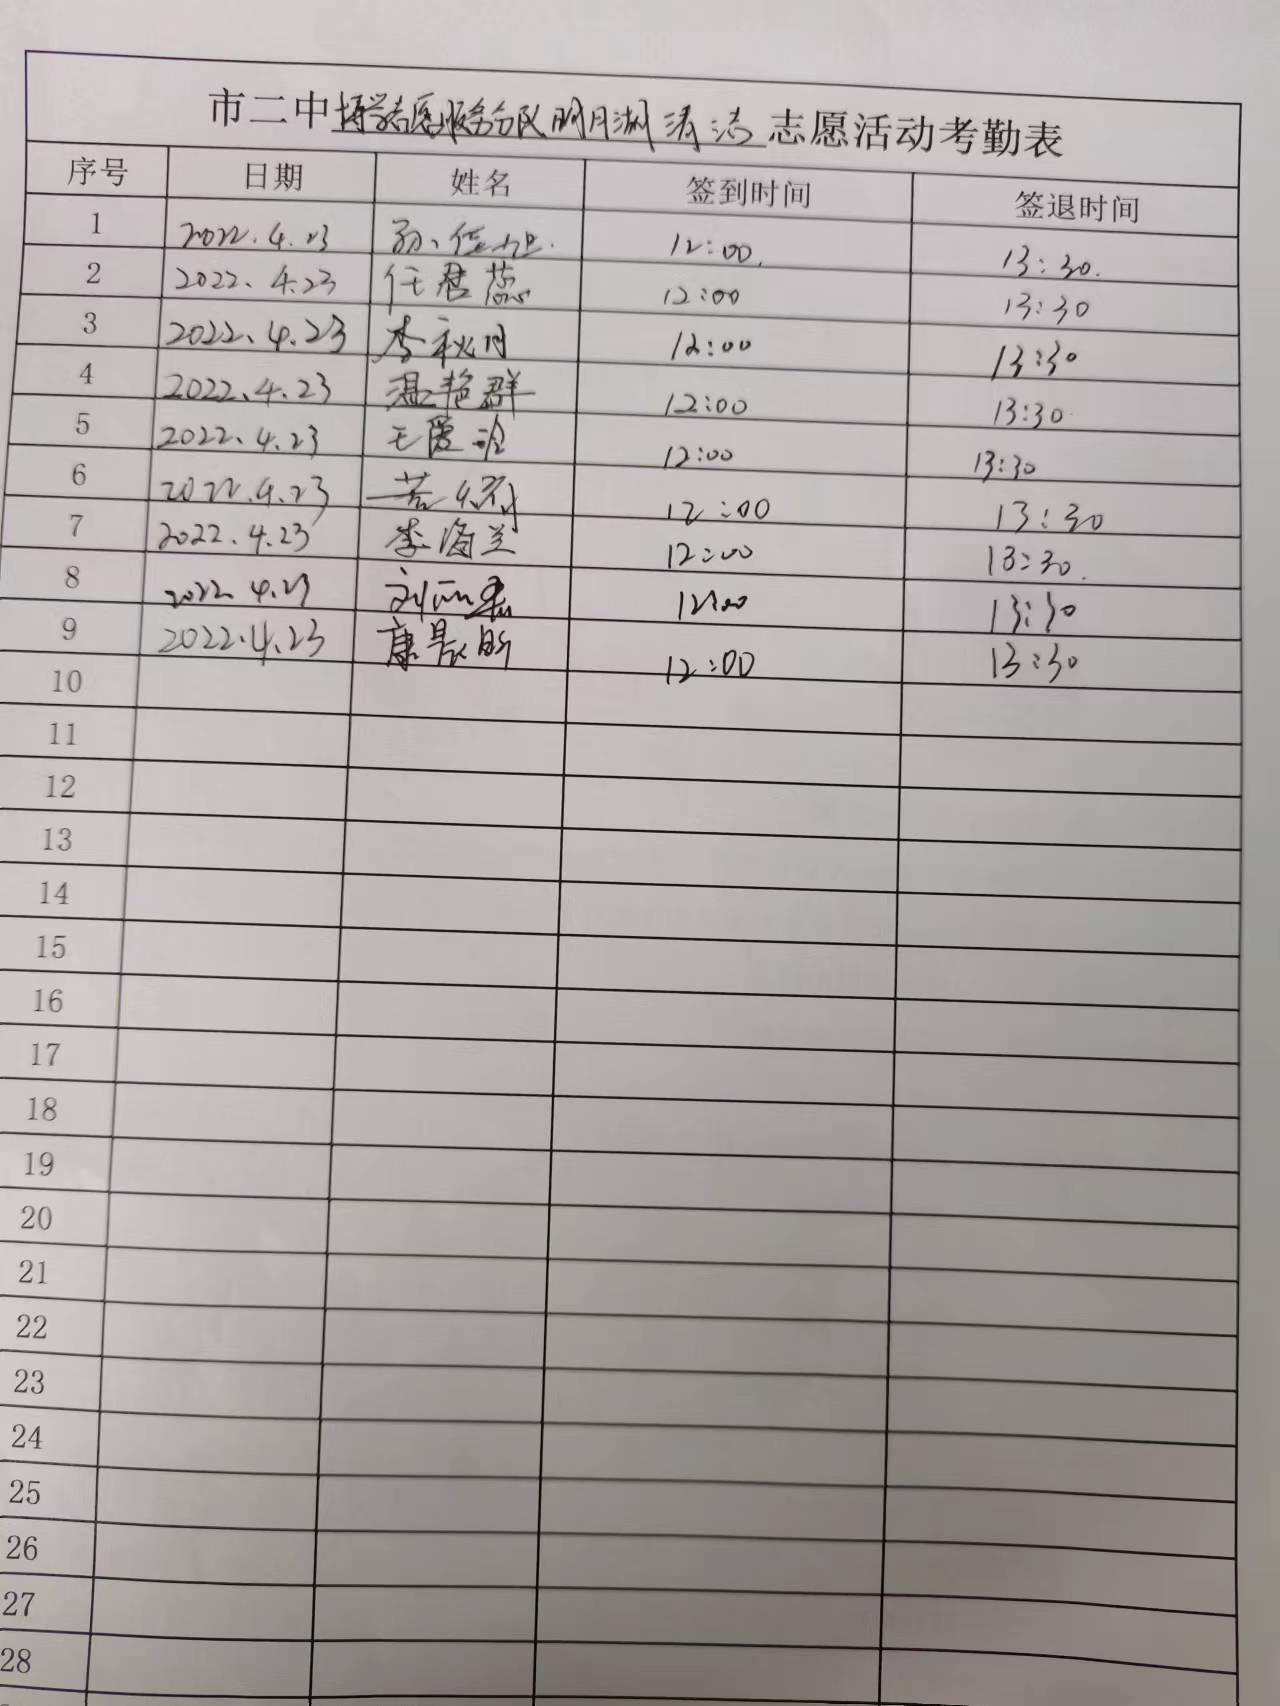 市二中博学志愿服务分队明月湖清洁志愿活动考勤表
序号 日期 姓名 签到时间 签退时间
1 2022.4.23 孙 12:00. 13:30.
2 2022.4.23 任君蕊 12:00 13:30
3 2022.4.23 李秋月 12:00 13:30
4 2022.4.23 温艳群 12:00 13:30
5 2022.4.23 王爱 12:00 13:30
6 2022.4.23 12:00 13:30
7 2022.4.23 李海兰 12:00 13:30.
8 2022.4.23 刘丽 12:00 13:30
9 2022.4.23 康晨明 12:00 13:30
10
11
12
13
14
15
16
17
18
19
20
21
22
23
24
25
26
27
28